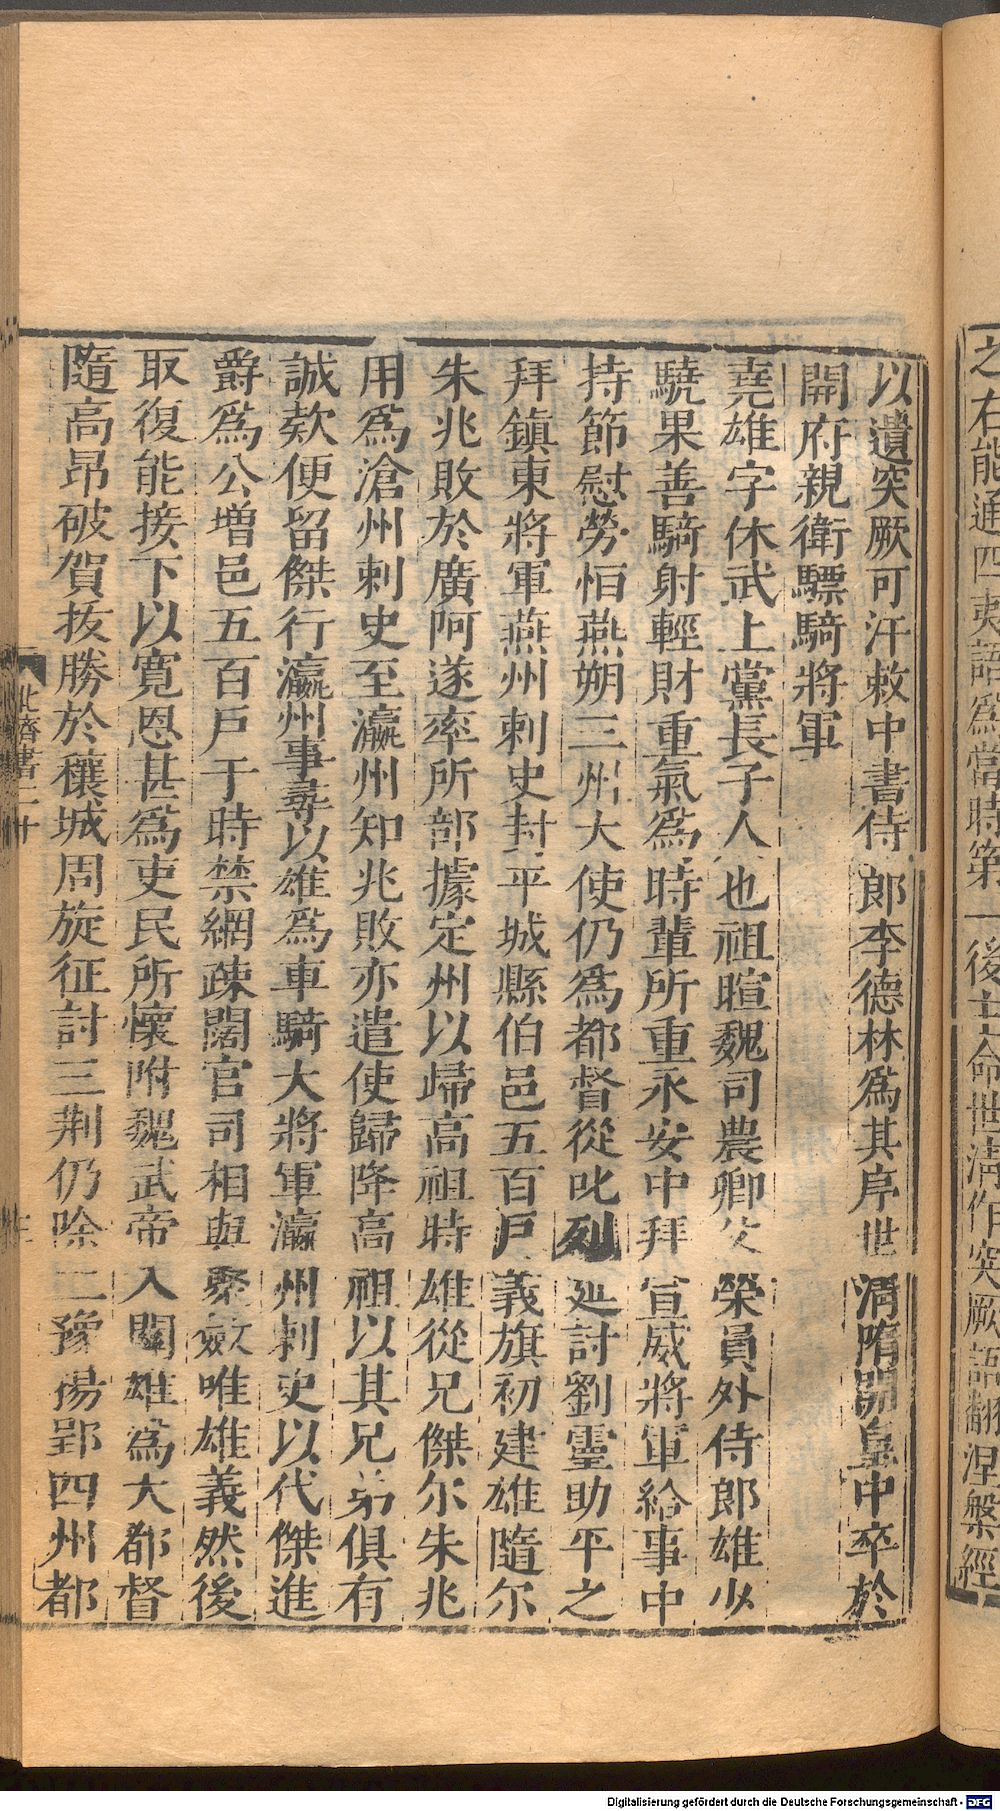 之右能通四夷語爲當時第一後主命世清作突厥語翻涅槃經
以遺突厥可汗敕中書侍郎李德林爲其序世清隋開皇中卒於
開府親衛驃騎將軍
堯雄字休武上黨長子人也祖暄魏司農卿父榮員外侍郎雄少
驍果善騎射輕財重氣爲時輩所重永安中拜宣威將軍給事中
持節慰勞恒燕朔三州大使仍爲都督從叱列延討劉靈助平之
拜鎮東將軍燕州刺史封平城縣伯邑五百戸義旗初建雄隨尔
朱兆敗於廣阿遂率所部據定州以歸高祖時雄從兄傑尔朱兆
用爲滄州刺史至瀛州知兆敗亦遣使歸降高祖以其兄弟俱有
誠欵便留傑行瀛州事尋以雄爲車騎大將軍瀛州刺史以代傑進
爵爲公增邑五百戸于時禁網疎闊官司相與聚斂唯雄義然後
取復能接下以寬恩甚爲吏民所懷附魏武帝入關雄爲大都督
隨高昂破賀拔勝於穰城周旋征討三荆仍除二豫揚郢四州都
北齊書二十
Digitalisierung gefördert durch die Deutsche Forschungsgemeinschaft - DFG